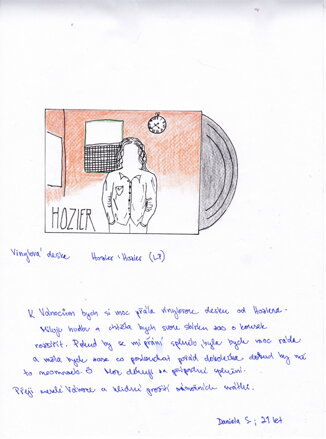 HOZIER
Vinylová deska Hozier: Hozier (LP)
K Vánocům bych si moc přála vinylovou desku od Hoziera.
Miluju hudbu a chtěla bych svou sbírku zas o kousek
rozšířit. Pokud by se mi přání splnilo, byla bych moc ráda
a měla bych zase co poslouchat pořád dokolečka dokud by mě
to neomrzelo. Moc děkuji za případné splnění.
Přeji veselé Vánoce a klidné prožití vánočních svátků.
Daniela S.; 21 let